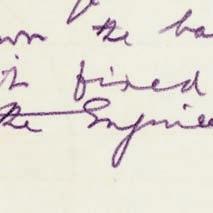 the ba
fixed
the Enginee